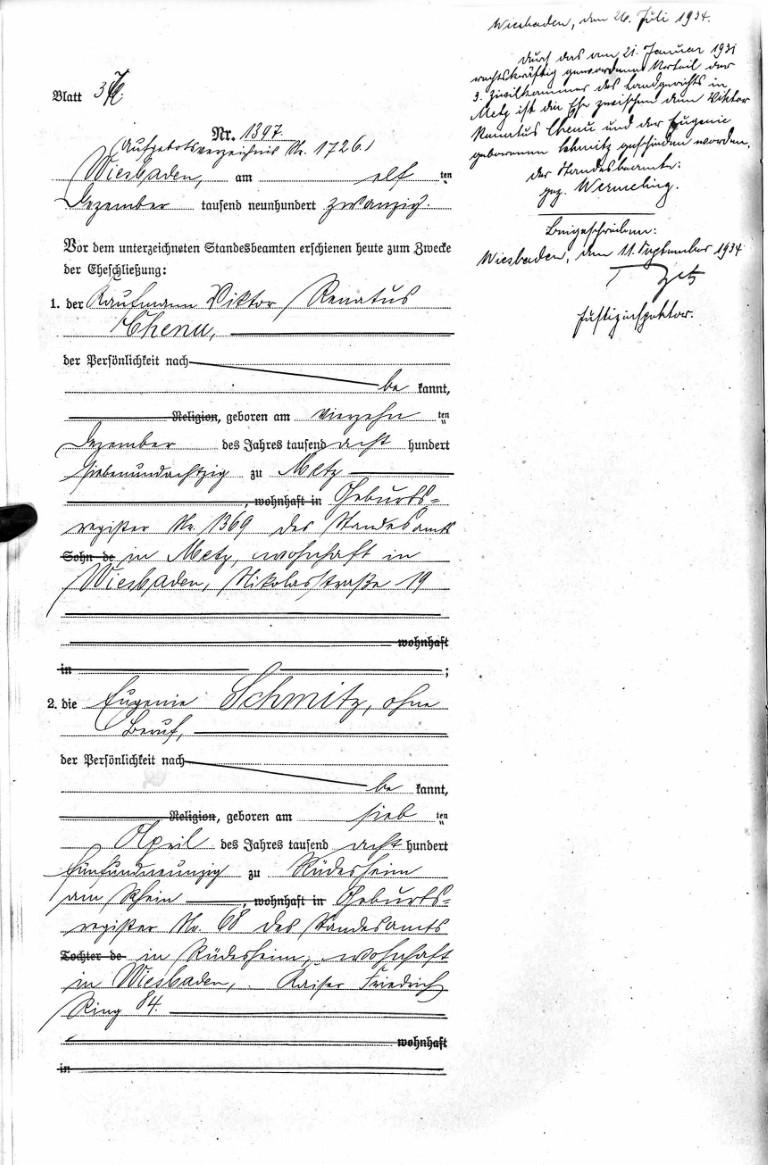 Blatt
Nr. 1897.
Aufgebotsverzeichnis Nr. 1726.
Wiesbaden, am elf ten
Dezember tausend neunhundert zwanzig.
Vor dem unterzeichneten Standesbeamten erschienen heute zum Zwecke
der Eheschließung:
1. der Kaufmann Viktor Renatus
Chenu,
der Persönlichkeit nach
be kannt,
Religion, geboren am vierzehn ten
Dezember des Jahres tausend acht hundert
siebenundachtzig zu Metz
, wohnhaft in Geburts-
register Nr. 1369 des Standesamts
Sohn de in Metz, wohnhaft in
Wiesbaden, Nikolasstraße 19
wohnhaft
in ;
2. die Eugenie Schmitz, ohne
Beruf,
der Persönlichkeit nach
be kannt,
Religion, geboren am sieb ten
April des Jahres tausend acht hundert
fünfundneunzig zu Rüdesheim
am Rhein , wohnhaft in Geburts-
register No. 68 des Standesamts
Tochter de in Rüdesheim, wohnhaft
in Wiesbaden, Kaiser Friedrich
Ring 84.
wohnhaft
in
Wiesbaden, den 26. Juli 1934.
Durch das am 21. Januar 1931
rechtskräftig gewordene Urteil der
3. Zivilkammer des Landgerichts in
Metz ist die Ehe zwischen dem Viktor
Renatus Chenu und der Eugenie
geborenen Schmitz geschieden worden.
Der Standesbeamte:
gez. Wermeling.
Beigeschrieben:
Wiesbaden, den 11. September 1934
Justizinspektor.